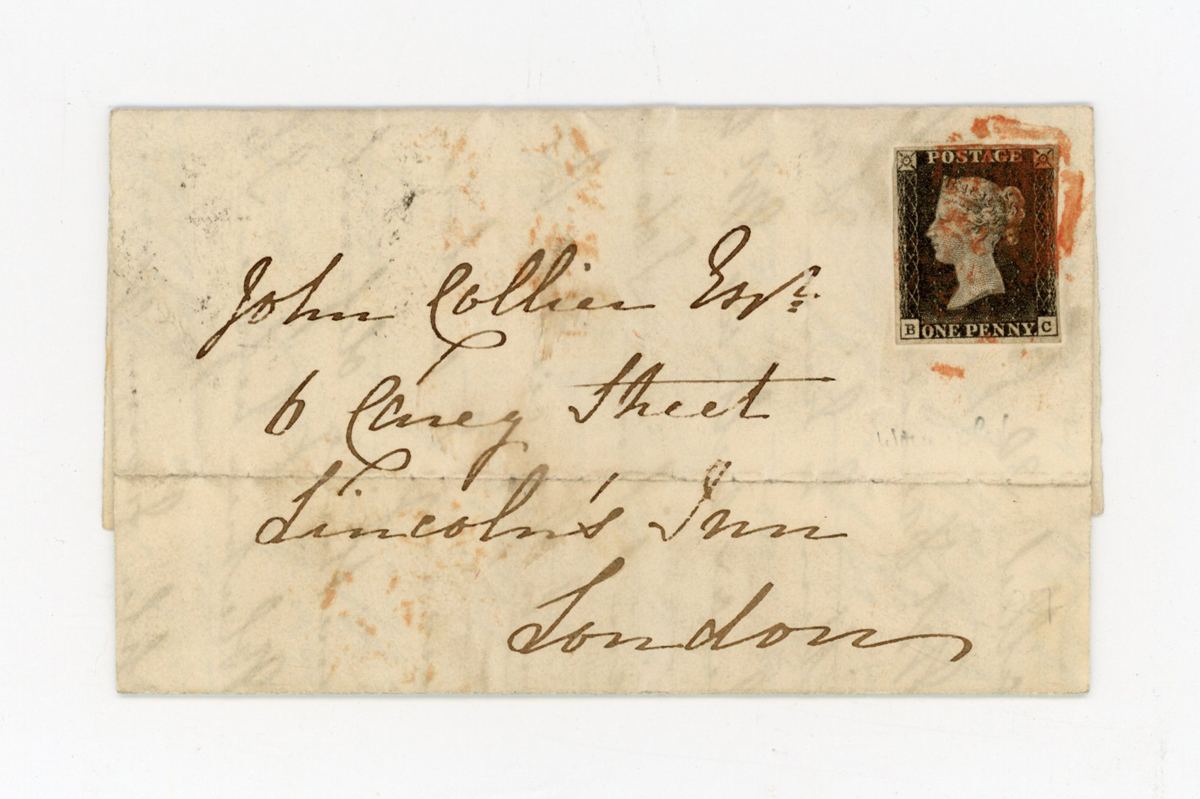 POSTAGE
B ONE PENNY. C
John Collier Esqr.
6 Carey Street
Lincoln's Inn
London